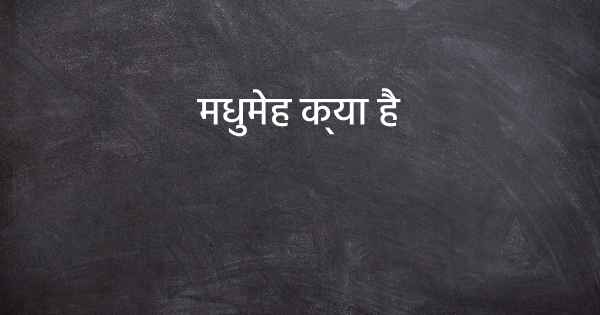 मधुमेह क्या है